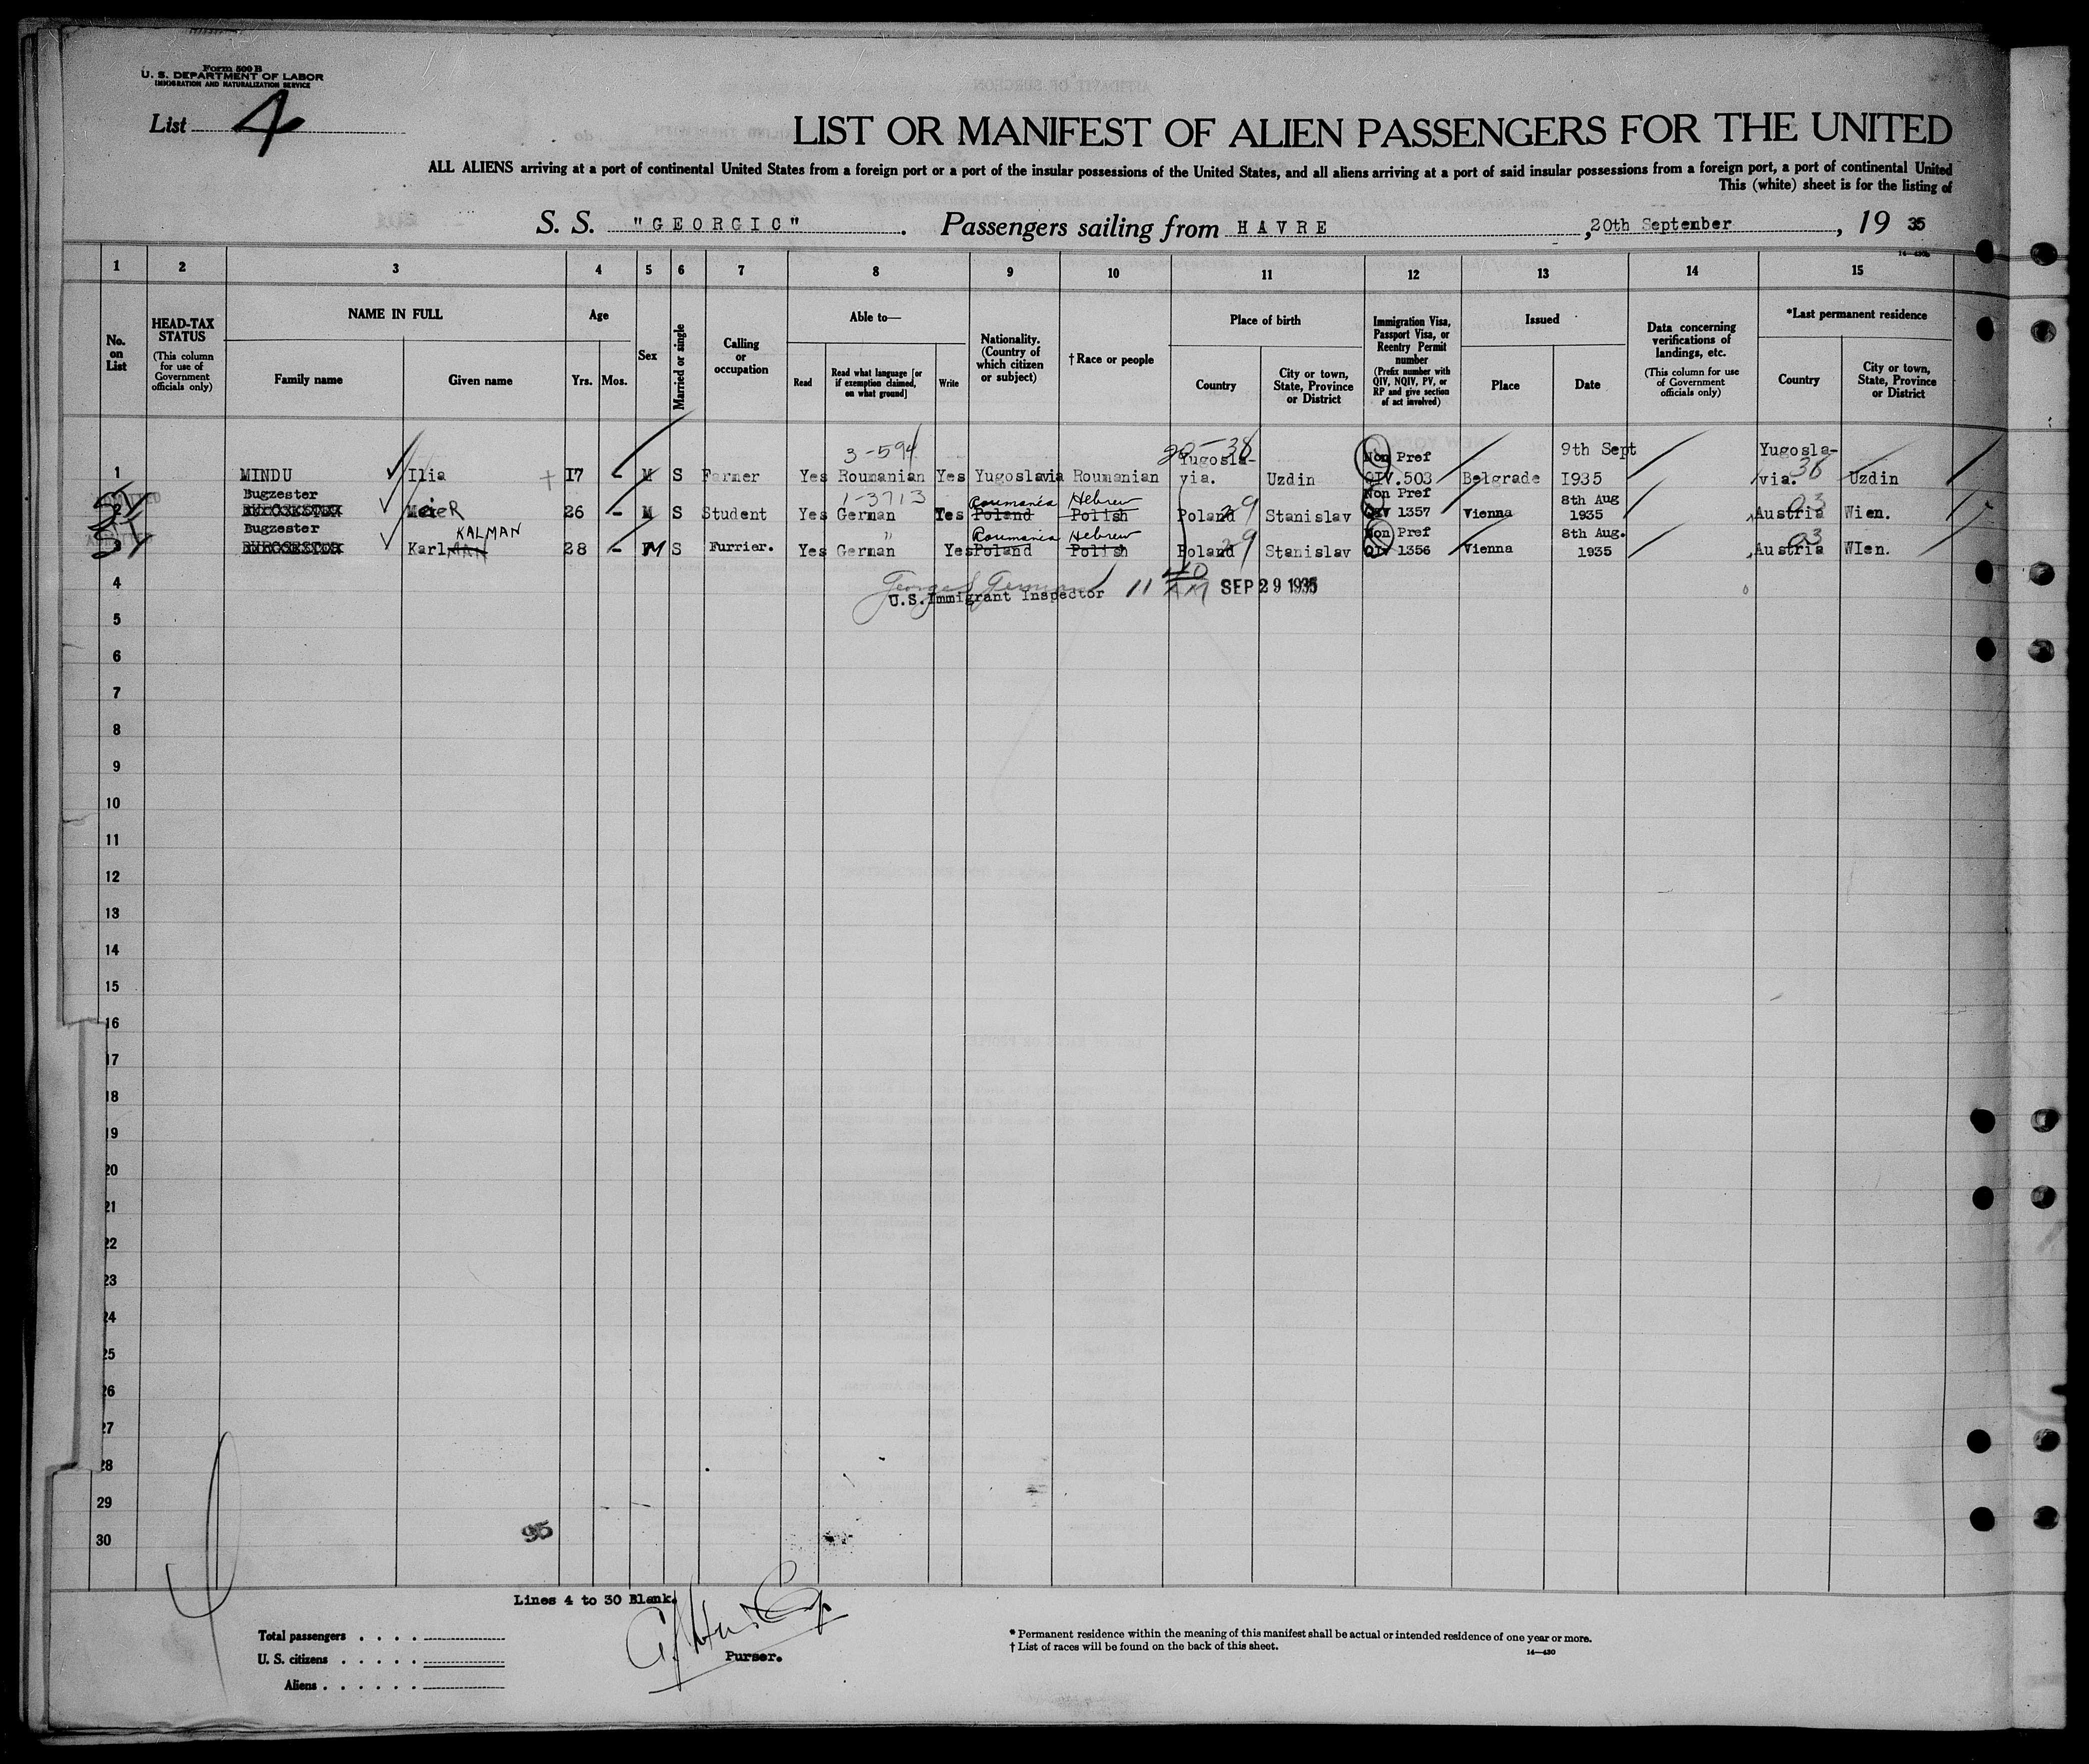 Form 500 B
U. S. DEPARTMENT OF LABOR
IMMIGRATION AND NATURALIZATION SERVICE
List 4
LIST OR MANIFEST OF ALIEN PASSENGERS FOR THE UNITED
ALL ALIENS arriving at a port of continental United States from a foreign port or a port of the insular possessions of the United States, and all aliens arriving at a port of said insular possessions from a foreign port, a port of continental United
This (white) sheet is for the listing of
S. S. "GEORGIC". Passengers sailing from HAVRE, 20th September, 19 35
1 2 3 4 5 6 7 8 9 10 11 12 13 14 15
No. on List
HEAD-TAX STATUS (This column for use of Government officials only)
NAME IN FULL
Family name
Given name
Age
Yrs. Mos.
Sex
Married or single
Calling or occupation
Able to—
Read
Read what language [or if exemption claimed, on what ground]
Write
Nationality. (Country of which citizen or subject)
†Race or people
Place of birth
Country
City or town, State, Province or District
Immigration Visa, Passport Visa, or Reentry Permit number (Prefix number with QIV, NQIV, PV, or RP and give section of act involved)
Issued
Place
Date
Data concerning verifications of landings, etc. (This column for use of Government officials only)
*Last permanent residence
Country
City or town, State, Province or District
3-594 Yugosla- Non Pref 9th Sept Yugosla-
1 MINDU Ilia 17 - M S Farmer Yes Roumanian Yes Yugoslavia Roumanian via. Uzdin QIV.503 Belgrade 1935 via. 38 Uzdin
Bugzester 1-3713 Roumania Hebrew Non Pref 8th Aug
2 MeieR 26 - M S Student Yes German Yes Poland Polish Poland 29 Stanislav QIV 1357 Vienna 1935 Austria 03 Wien.
Bugzester KALMAN " Roumania Hebrew Non Pref 8th Aug.
3 Karl 28 - M S Furrier. Yes German Yes Poland Polish Poland 29 Stanislav QIV 1356 Vienna 1935 Austria 03 WIen.
4 U.S.Immigrant Inspector 11 SEP 29 1935
5
6
7
8
9
10
11
12
13
14
15
16
17
18
19
20
21
22
23
24
25
26
27
28
29
30
95
Lines 4 to 30 Blank.
Purser.
Total passengers . . . .
U. S. citizens . . . . .
Aliens . . . . . .
* Permanent residence within the meaning of this manifest shall be actual or intended residence of one year or more.
† List of races will be found on the back of this sheet.
14—430